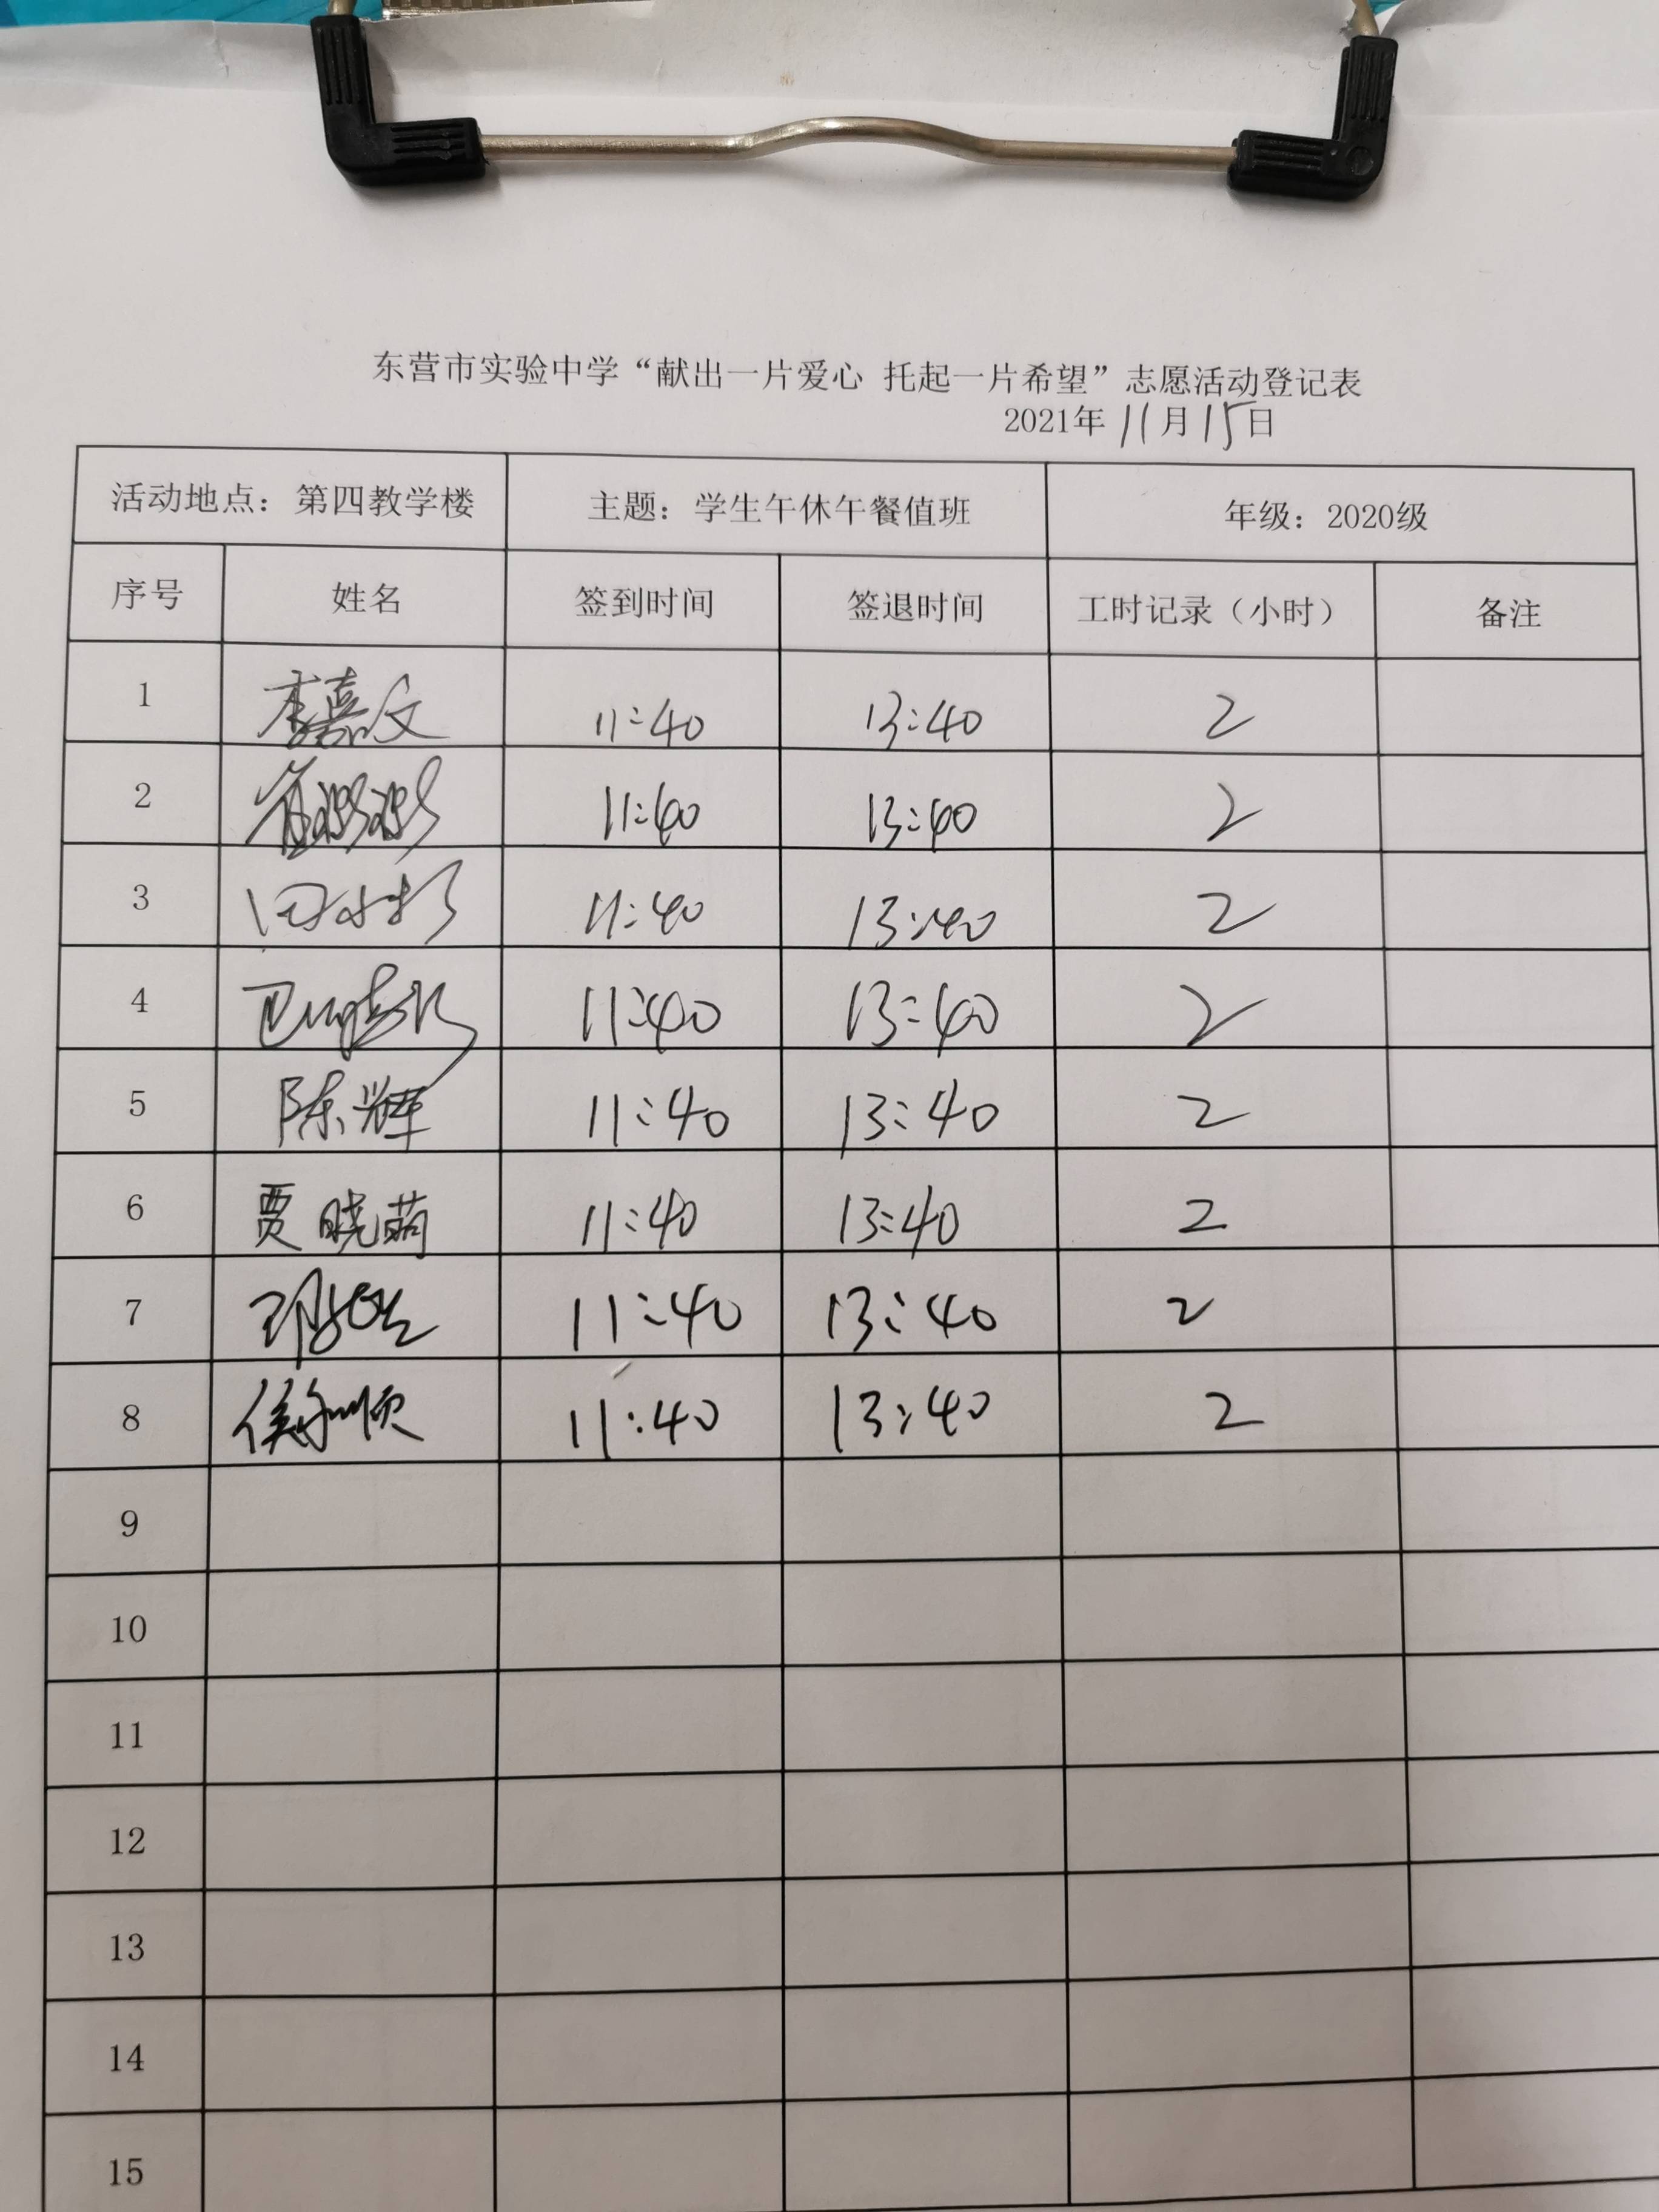 东营市实验中学“献出一片爱心 托起一片希望”志愿活动登记表
2021年11月15日
活动地点：第四教学楼 主题：学生午休午餐值班 年级：2020级
序号 姓名 签到时间 签退时间 工时记录（小时） 备注
1 李嘉文 11:40 13:40 2
2 11:40 13:40 2
3 11:40 13:40 2
4 11:40 13:40 2
5 陈辉 11:40 13:40 2
6 贾晓萌 11:40 13:40 2
7 11:40 13:40 2
8 11:40 13:40 2
9
10
11
12
13
14
15